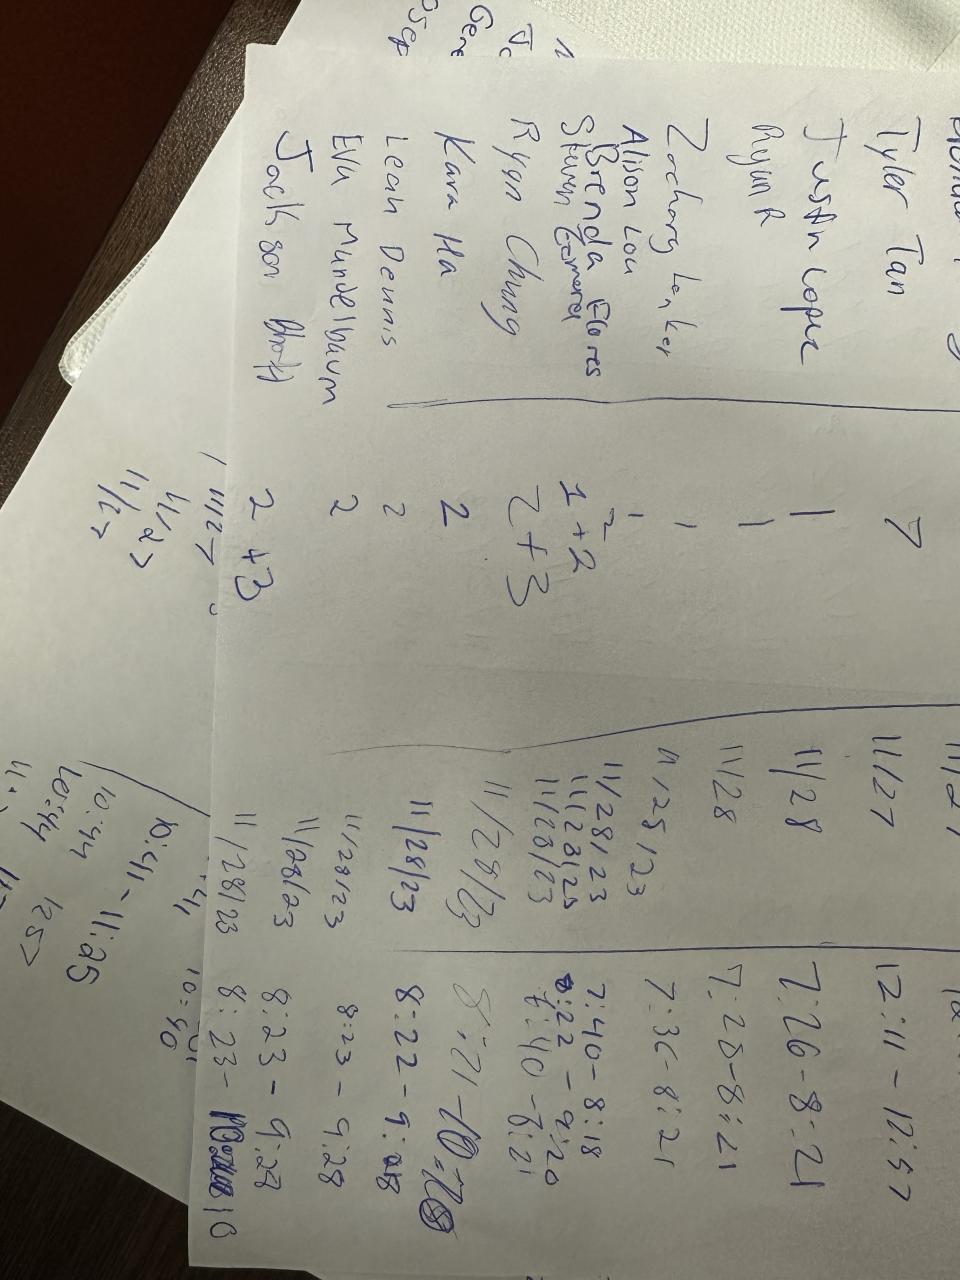 Tyler Tan 7 11/27 12:11 - 12:57
Justin Lopez 1 11/28 7:26 - 8:21
Ryan R 1 11/28 7:28 - 8:21
Zachary Lenker 1 11/28/23 7:36 - 8:21
Alison Lou 1 11/28/23 7:40 - 8:18
Brenda Flores 2 11/28/23 8:22 - 9:20
Steven 1 + 2 11/28/23 7:40 - 8:21
Ryan Chung 2 + 3 11/28/23 8:21 - 10:20
Kara Ha 2 11/28/23 8:22 - 9:
Leah Dennis 2 11/28/23 8:23 - 9:28
Eva Mundelbaum 2 11/28/23 8:23 - 9:27
Jackson Bhatt 2 + 3 11/28/23 8:23 - 10
11/27
11/27 10:41 - 11:25
11/27 10:44
10:44